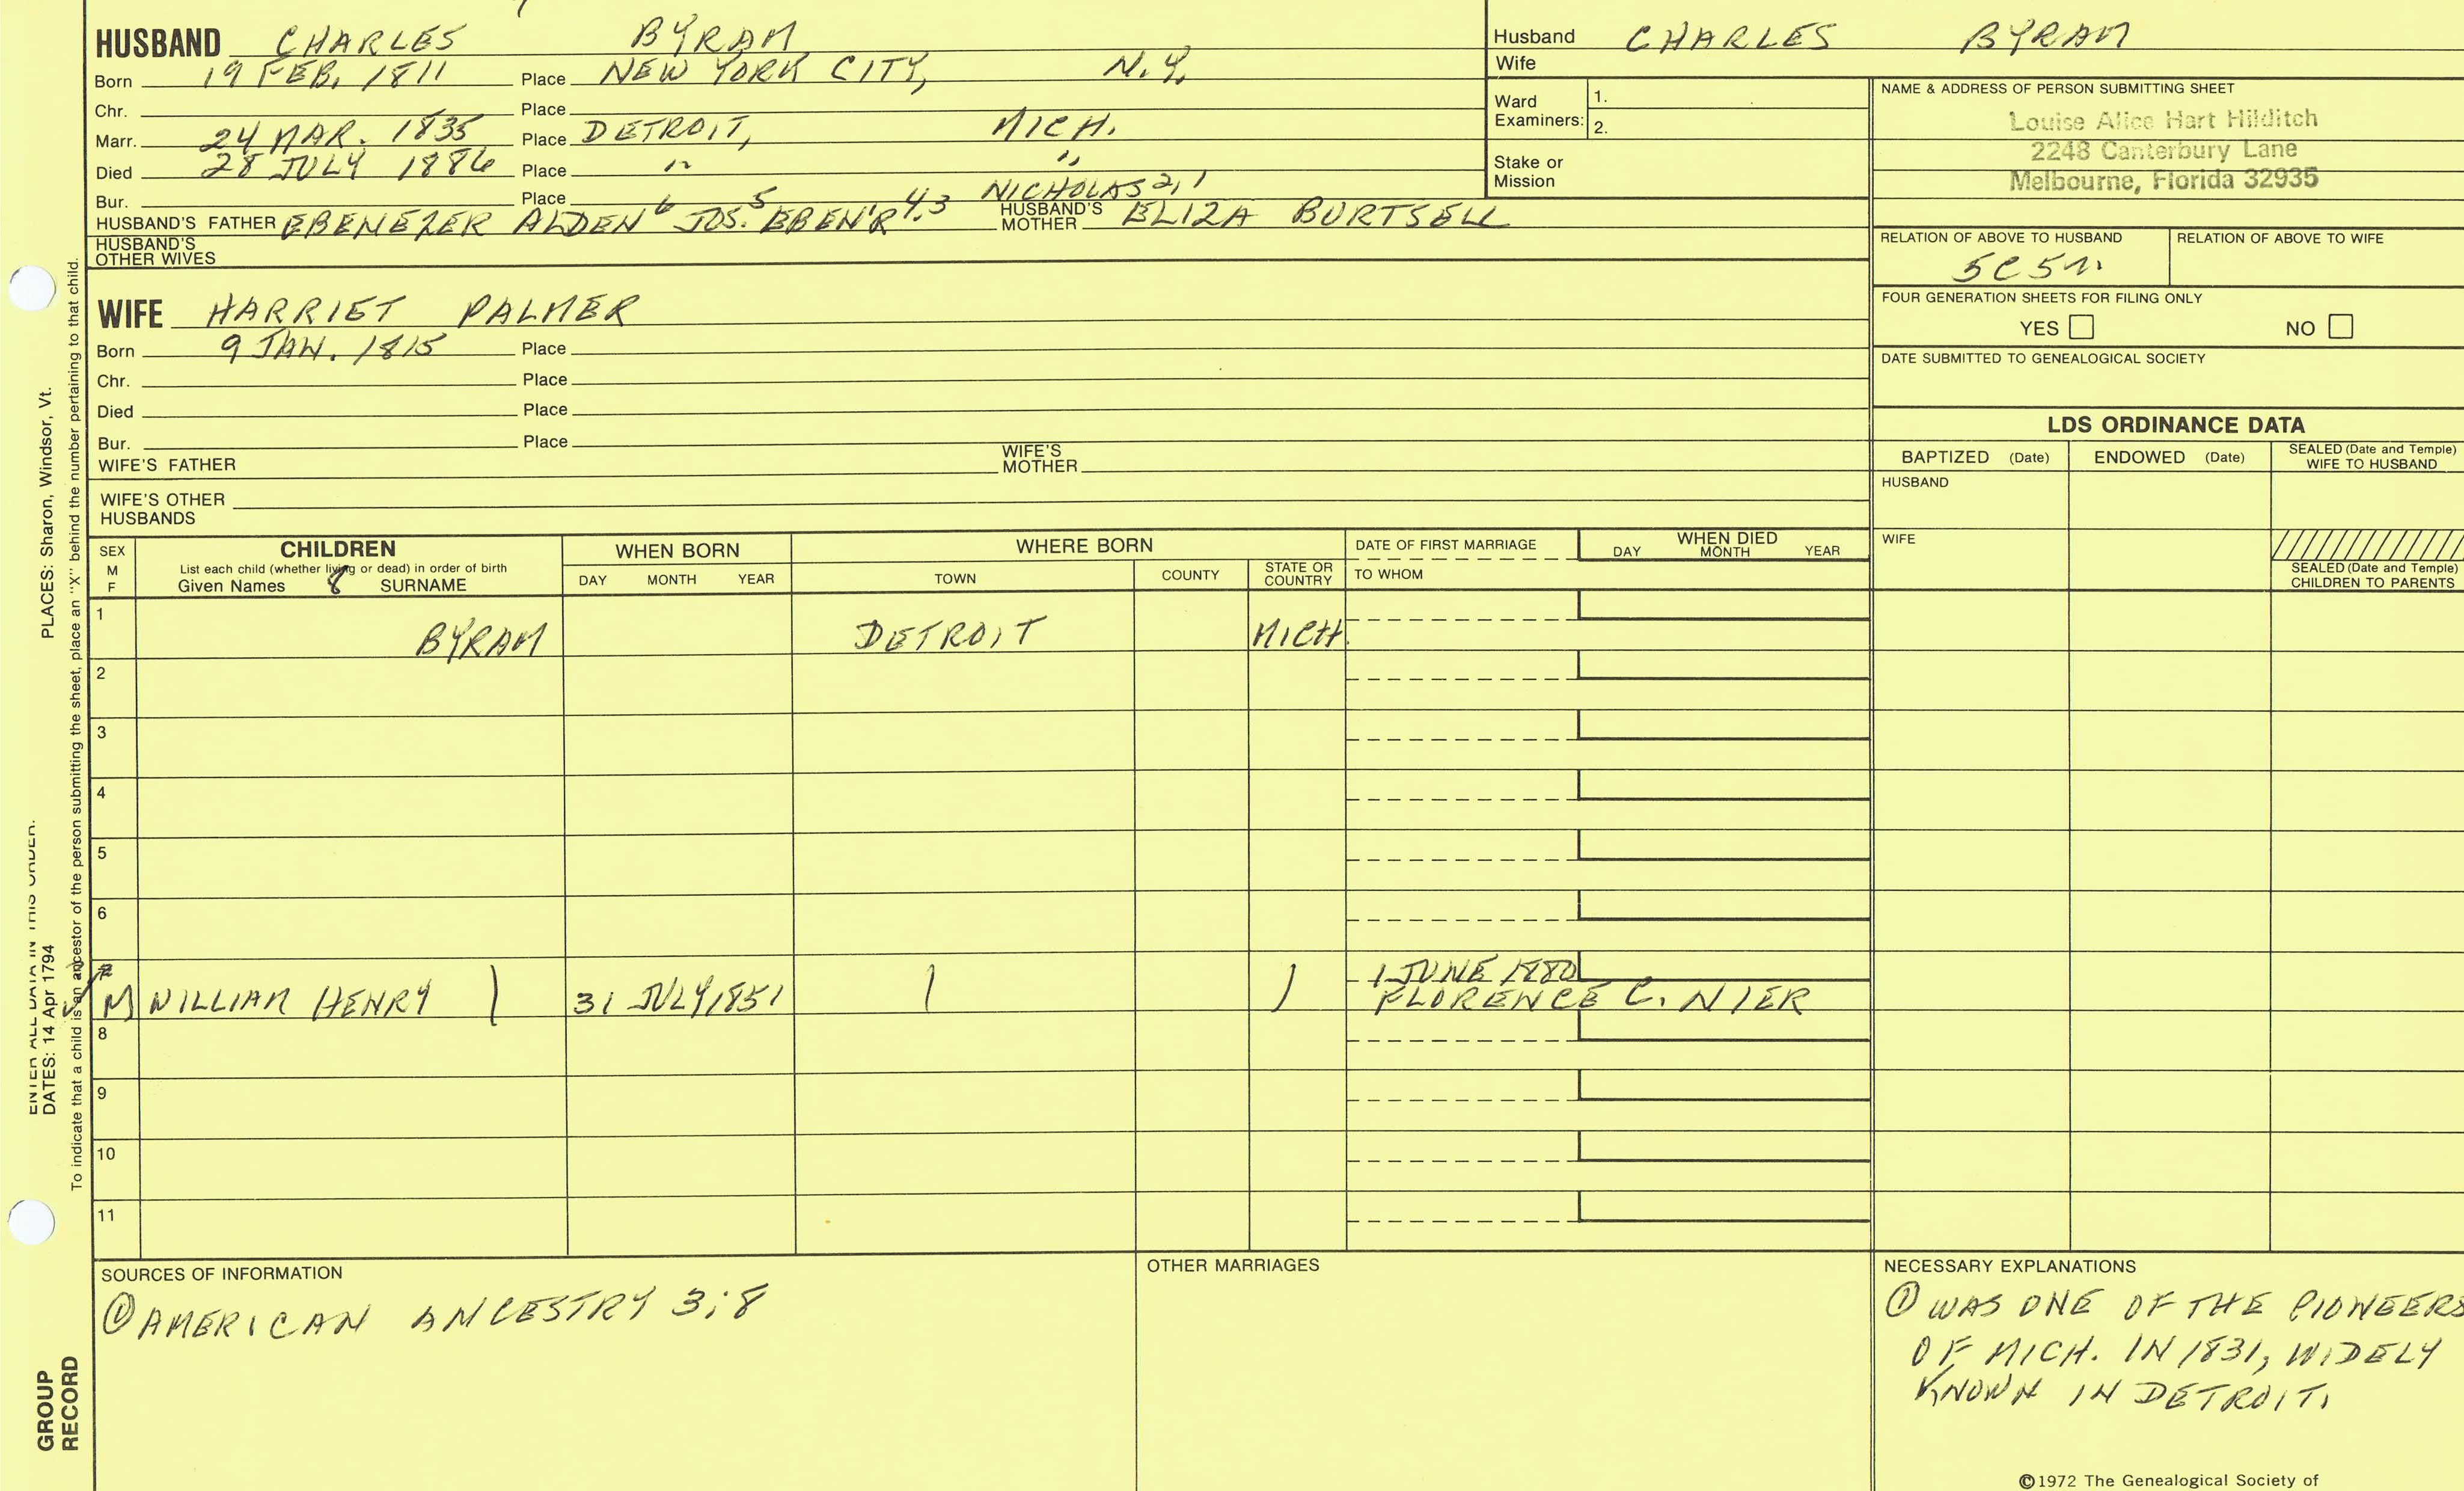 HUSBAND CHARLES BYRAM
Born 19 FEB. 1811 Place NEW YORK CITY, N.Y.
Chr. Place
Marr. 24 MAR. 1835 Place DETROIT, MICH.
Died 28 JULY 1886 Place " "
Bur. Place
HUSBAND'S FATHER EBENEZER ALDEN 6 JOS. 5 EBEN'R 4,3 NICHOLAS 2,1 HUSBAND'S MOTHER ELIZA BURTSELL
HUSBAND'S OTHER WIVES
Husband CHARLES BYRAM
Wife
Ward Examiners: 1.
2.
Stake or Mission
NAME & ADDRESS OF PERSON SUBMITTING SHEET
Louise Alice Hart Hilditch
2248 Canterbury Lane
Melbourne, Florida 32935
RELATION OF ABOVE TO HUSBAND RELATION OF ABOVE TO WIFE
FOUR GENERATION SHEETS FOR FILING ONLY
YES NO
DATE SUBMITTED TO GENEALOGICAL SOCIETY
WIFE HARRIET PALMER
Born 9 JAN. 1815 Place
Chr. Place
Died Place
Bur. Place
WIFE'S FATHER WIFE'S MOTHER
WIFE'S OTHER HUSBANDS
LDS ORDINANCE DATA
BAPTIZED (Date) ENDOWED (Date) SEALED (Date and Temple) WIFE TO HUSBAND
HUSBAND
WIFE
SEALED (Date and Temple) CHILDREN TO PARENTS
SEX M F
CHILDREN
List each child (whether living or dead) in order of birth
Given Names 8 SURNAME
WHEN BORN
DAY MONTH YEAR
WHERE BORN
TOWN COUNTY STATE OR COUNTRY
DATE OF FIRST MARRIAGE
TO WHOM
WHEN DIED
DAY MONTH YEAR
1 BYRAM DETROIT MICH.
2
3
4
5
6
7 1 JUNE 1880
M WILLIAM HENRY 31 JULY 1851 FLORENCE C. NIER
8
9
10
11
SOURCES OF INFORMATION
① AMERICAN ANCESTRY 3:8
OTHER MARRIAGES
NECESSARY EXPLANATIONS
① WAS ONE OF THE PIONEERS
OF MICH. IN 1831, WIDELY
KNOWN IN DETROIT.
©1972 The Genealogical Society of
ENTER ALL DATA IN THIS ORDER.
DATES: 14 Apr 1794 PLACES: Sharon, Windsor, Vt.
To indicate that a child is an ancestor of the person submitting the sheet, place an "X" behind the number pertaining to that child.
GROUP
RECORD